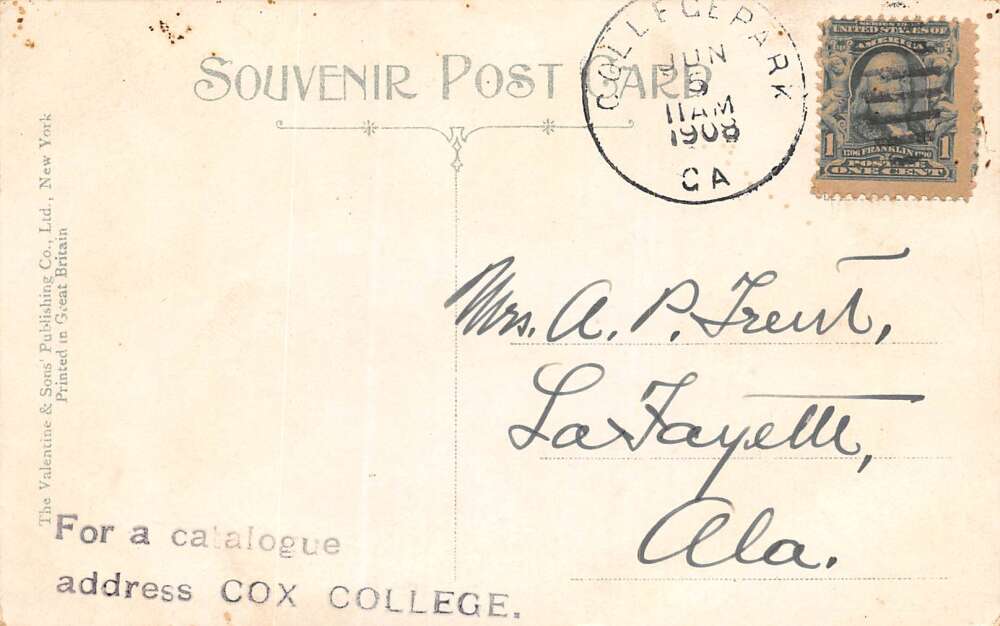 SOUVENIR POST CARD
COLLEGE PARK
JUN
5
11 AM
1908
GA
UNITED STATES OF
AMERICA
1
1706 FRANKLIN 1790
1
POSTAGE
ONE CENT
The Valentine & Sons' Publishing Co., Ltd., New York
Printed in Great Britain
Mrs. A. P. Trent,
LaFayette,
Ala.
For a catalogue
address COX COLLEGE.